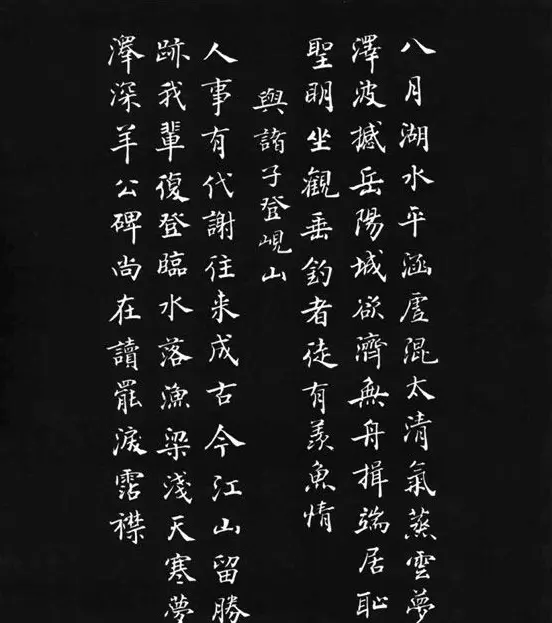 八月湖水平涵虛混太清氣蒸雲夢
澤波撼岳陽城欲濟無舟揖端居恥
聖明坐觀垂釣者徒有羨魚情
與諸子登峴山
人事有代謝往来成古今江山留勝
跡我輩復登臨水落漁梁淺天寒夢
澤深羊公碑尚在讀罷淚霑襟